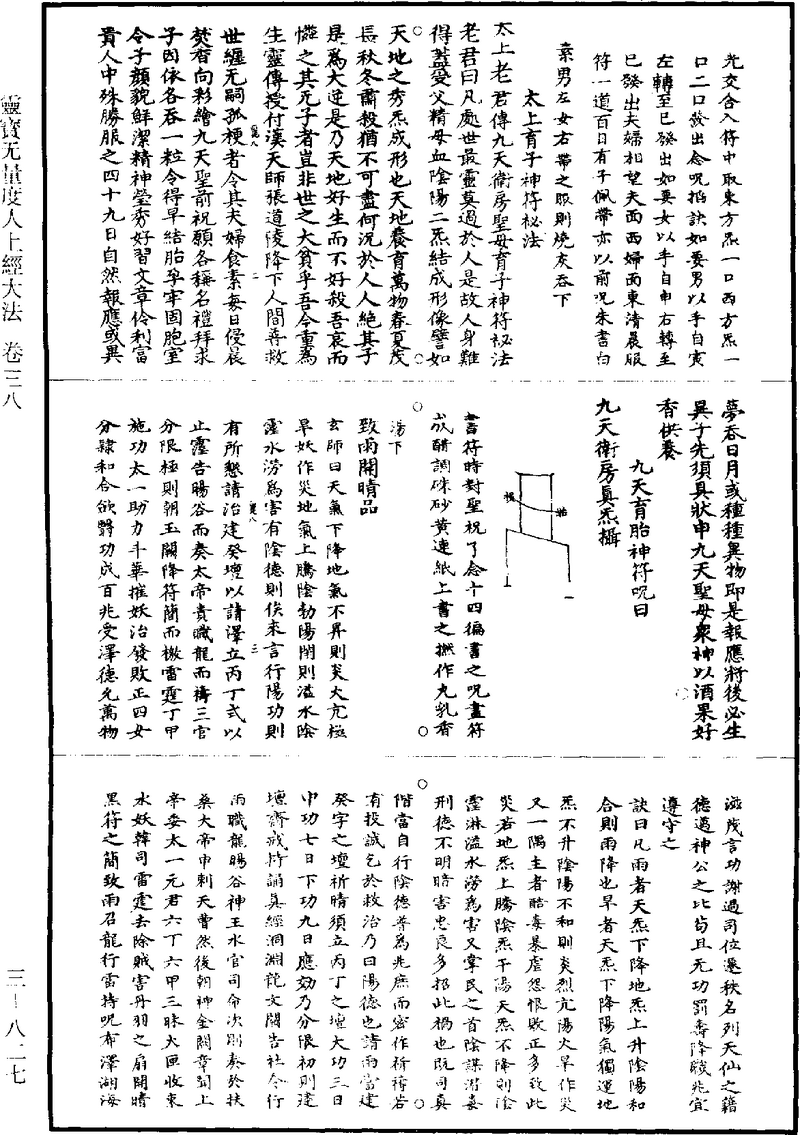 靈寶无量度人上經大法　卷三八
三－八二七
光交合入符中取東方炁一口西方炁一
口二口發出念呪掐訣如要男以手自寅
左轉至巳發出如要女以手自申右轉至
巳發出夫婦相望夫面西婦面東清晨服
符一道百日有子佩帶亦以前呪朱書白
素男左女右帶之服則燒灰吞下
太上育子神符祕法
太上老君傳九天衛房聖母育子神符祕法
老君曰凡處世最靈莫過於人是故人身難
得蓋受父精母血陰陽二炁結成形像譬如
天地之秀炁成形也天地養育萬物春夏茂
長秋冬肅殺猶不可盡何況於人人絕其子
是為大逆是乃天地好生而不好殺吾哀而
憐之其无子者豈非世之大貧乎吾今重為
生靈傳授付漢天師張道陵降下人間普救
世緾无嗣孤梗者令其夫婦食素每日侵晨
焚香向彩繪九天聖前祝願各稱名禮拜求
子因依各吞一粒令得早結胎孕牢固胞室
令子顏貌鮮潔精神瑩秀好習文章伶利富
貴人中殊勝服之四十九日自然報應或異
夢吞日月或種種異物即是報應將後必生
異子先須具狀申九天聖母眾神以酒果好
香供養
九天育胎神符呪曰
九天衛房真炁攝
胎
書符時對聖祝了念十四徧書之呪畫符
成醋調硃砂黃連紙上書之撚作丸乳香
湯下
致雨開晴品
玄師曰天氣下降地氣不昇則炎火亢極
旱妖作災地氣上騰陰勃陽閉則溢水陰
靈水澇為害有陰德則俟來言行陽功則
有所懇請治建癸壇以請澤立丙丁式以
止靈告暘谷而奏太帝責職龍而禱三官
分限極則朝玉闕降符簡而檄雷霆丁甲
施功太一助力斗華摧妖治發敗正四女
分隸和合欲臀功成百兆受澤德允萬物
滋茂言功謝過司位遷秩名列天仙之籍
德邁神公之比苟且无功罰壽降職兆宜
遵守之
訣曰凡雨者天炁下降地炁上升陰陽和
合則雨降也旱者天炁下降陽氣獨運地
炁不升陰陽不和則炎烈亢陽火旱作災
又一隅主者酷毒暴虐怨恨敗正多致此
災若地炁上騰陰炁干陽天炁不降則陰
靈淋溢水澇為害又宰民之首陰謀潛毒
刑德不明暗害忠良多招此禍也既司真
階當自行陰德普為兆庶而密作祈禱若
有投誠乞於救治乃曰陽德也請雨當建
癸字之壇祈晴須立丙丁之壇大功三日
中功七日下功九日應効乃分限初則建
壇齋戒持誦真經洞淵龍文關告社令行
雨職龍暘谷神王水官司命次則奏於扶
桑大帝申刺天曹然後朝神金闕章詞上
帝委太一元君六丁六甲三昧火匝收束
水妖韓司雷霆去除賊害丹羽之扇開晴
黑符之簡致雨召龍行雷持呪布澤湖海